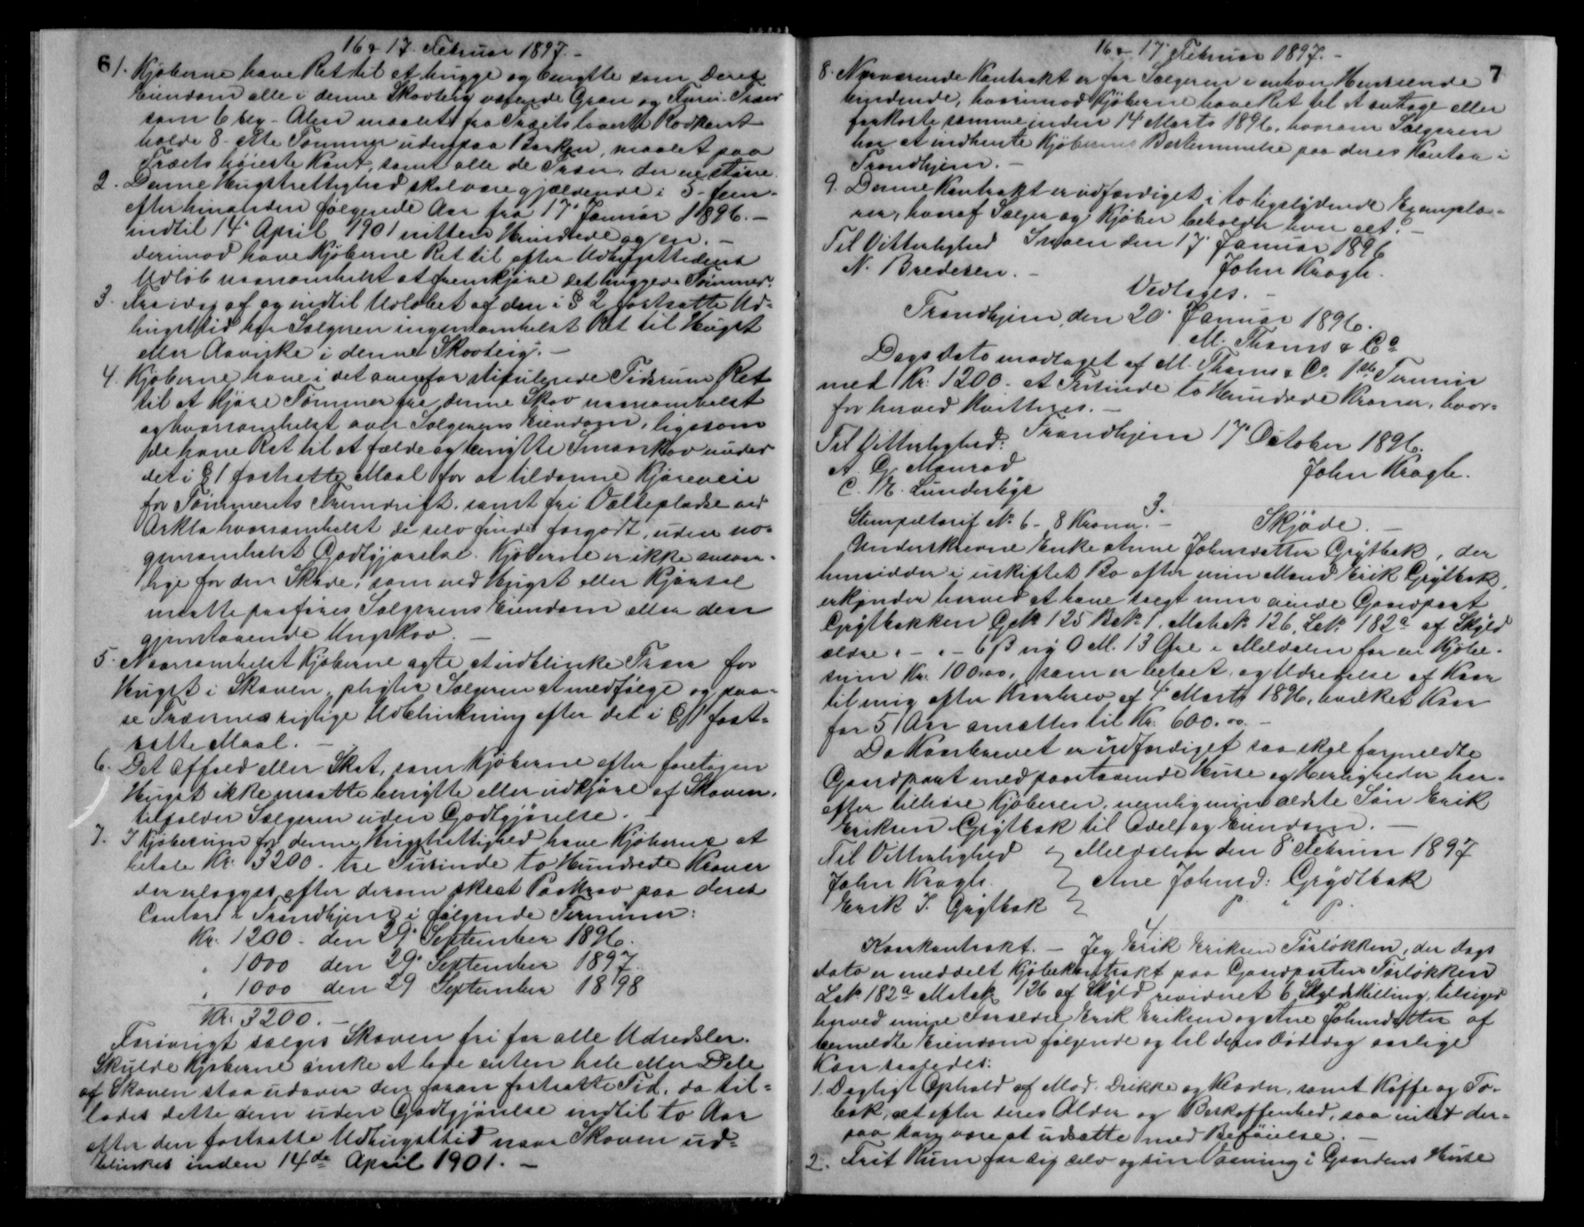 16 & 17. Februar 1897. -
6
1. Kjøberne have Ret til at hugge og benytte som deres
Eiendom alle i denne Skovteig værende Gran og Furu-Træer
som 6 sex - Alen maalet fra Træets laveste Rodkant
holde 8. otte Tommer udenpaa Barken, maalet paa
Træets høieste Kant, samt alle de Træer, der ere større.
2. Denne Hugstrettighed skal være gjældende i 5 - fem -
efter hinanden følgende Aar fra 17' Januar 1896. -
indtil 14' April 1901 nitten Hundrede og en. -
derimod have Kjøberne Ret til efter Udhugsttidens
Udløb naarsomhelst at fremkjøre det huggede Tømmer.
3. Fra idag af og indtil Udløbet af den i § 2 fastsatte Ud-
hugsttid har Sælgeren ingensomhelst Ret til Hugst
eller Aavirke i denne Skovteig. -
4. Kjøberne have i det ovenfor stipulerede Tidsrum Ret
til at kjøre Tømmer fra denne Skov naarsomhelst
og hvorsomhelst over Sælgerens Eiendom, ligesom
de have Ret til at fælde og benytte Smaaskov under
det i § 1 fastsatte Maal for at tildanne Kjøreveie
for Tømmerets Fremdrift, samt fri Vælteplads ved
Orkla hvorsomhelst de selv finde forgodt, uden no-
gensomhelst Godtgjørelse. Kjøberne er ikke ansvar-
lige for den Skade, som ved Hugst eller Kjørsel
maatte paaføres Sælgerens Eiendom eller den
gjenstaaende Ungskov. -
5. Naarsomhelst Kjøberne agte at udblinke Træer for
Hugst i Skoven, pligter Sælgeren at medfølge og paa-
se Træernes rigtige Udblinkning efter det i § 1 fast-
satte Maal. -
6. Det Affald eller Skat, som Kjøberne efter foretagen
Hugst ikke maatte benytte eller udkjøre af Skoven,
tilfalder Sælgeren uden Godtgjørelse. -
7. I Kjøbesum for denne Hugstrettighed have Kjøberne at
betale Kr. 3200. tre Tusinde to Hundrede Kroner
der erlægges efter derom skeet Paakrav paa deres
Contor i Trondhjem i følgende Terminer:
Kr. 1200. den 29' September 1896.
" 1000 den 29' September 1897.
" 1000 den 29 September 1898
Kr. 3200. -
Forøvrigt sælges Skoven fri for alle Udredsler.
Skulde Kjøberne ønske at lade enten hele eller Dele
af Skoven staa udover den foran fastsatte Tid, da til-
lades dette dem uden Godtgjørelse indtil to Aar
efter den fastsatte Udhugsttid naar Skoven ud-
blinkes inden 14de April 1901. -
16 & 17' Februar 1897. -
7
8. Nærværende Kontrakt er for Sælgeren i enhver Henseende
bindende, hvorimod Kjøberne have Ret til at antage eller
forkaste samme inden 14' Marts 1896, hvorom Sælgeren
har at indhente Kjøbernes Bestemmelse paa deres Kontor i
Trondhjem. -
9. Denne Kontrakt er udfærdiget i to ligelydende Exempla-
rer, hvoraf Sælger og Kjøber beholde hver et. -
Til Vitterlighed Inven den 17' Januar 1896
N. Bredesen. - John Kragh.
Vedtages. -
Trondhjem, den 20' Januar 1896.
M. Thams & Co
Dags Dato modtaget af M. Thams & Co. 1ste Termin
med Kr. 1200 - et Tusinde to Hundrede Kroner, hvor-
for herved kvitteres. -
Trondhjem 17' October 1896.
Til Vitterlighed: John Kragh.
A. G. Monrad
C. M. Lunderlige
3.
Stempeltarif No 6 - 8 Kroner. - Skjøde. -
Underskrevne Enke Anne Johnsdatter Grytbak, der
hensidder i uskiftet Bo efter min Mand Erik Grytbak,
erkjender herved at have solgt min eiende Gaardpart
Grytbakken GNo 125 BNo 1. Mat. No 126, LNo 182a af Skyld
ældre " - " - 6 β ny 0 M. 13 Øre i Meldalen for en Kjøbe-
sum Kr. 100.00, som er betalt, og Udredelse af Kaar
til mig efter Kaarbrev af 4' Marts 1896, hvilket Kaar
for 5 Aar ansættes til Kr. 600.00. -
Da Kaarbrevet er udfærdiget saa skal formeldte
Gaardpart med paastaaende Huse og Herligheder her-
efter tilhøre Kjøberen, nemlig min ældste Søn Erik
Eriksen Grytbak til Odel og Eiendom. -
Til Vitterlighed Meldalen den 8 Februar 1897
John Kragh. Ane Johnsd: Grydtbak
Erik J. Grytbak p. " p.
4.
Kaarkontrakt. - Jeg Erik Eriksen Torløkken, der dags
dato er meddelt Kjøbekontrakt paa Gaardparten Torløkken
LNo 182a Mat. No 126 af Skyld revideret 6 Skyldskilling, tilsiger
herved mine Forældre Erik Eriksen og Ane Johnsdatter af
bemeldte Eiendom følgende og til deres Dødsdag aarlige
Kaar saaledes:
1. Dagligt Ophold af Mad. Drikke og Klæder, samt Kaffe og To-
bak, alt efter deres Alder og Beskaffenhed, saa intet der-
paa kan være at udsætte med Beføielse. -
2. Frit Huus for sig selv og sin Væening i Gaardens Huse